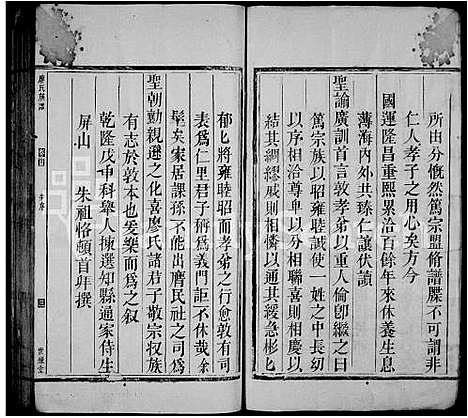 所由分慨然篤宗盟脩譜牒不可謂非
仁人孝子之用心矣方今
國運隆昌重熙累洽百餘年來休養生息
薄海內外共臻仁讓伏讀
聖諭廣訓首言敦孝弟以重人倫卽繼之曰
篤宗族以昭雍睦誠使一姓之中長幼
以序相洽尊卑以分相聯喜則相慶以
結其綢繆戚則相憐以通其緩急彬匕
郁匕將雍睦昭而孝弟之行愈敦有司
表爲仁里君子稱爲義門詎不休哉余
髦矣家居課孫不能出膺民社之司爲
聖朝勷親遜之化喜廖氏諸君子敬宗收族
有志於敦本也爰樂而爲之叙
乾隆戊申科舉人揀選知縣通家侍生
屏山 朱祖恪頓首拜撰
廖氏族譜